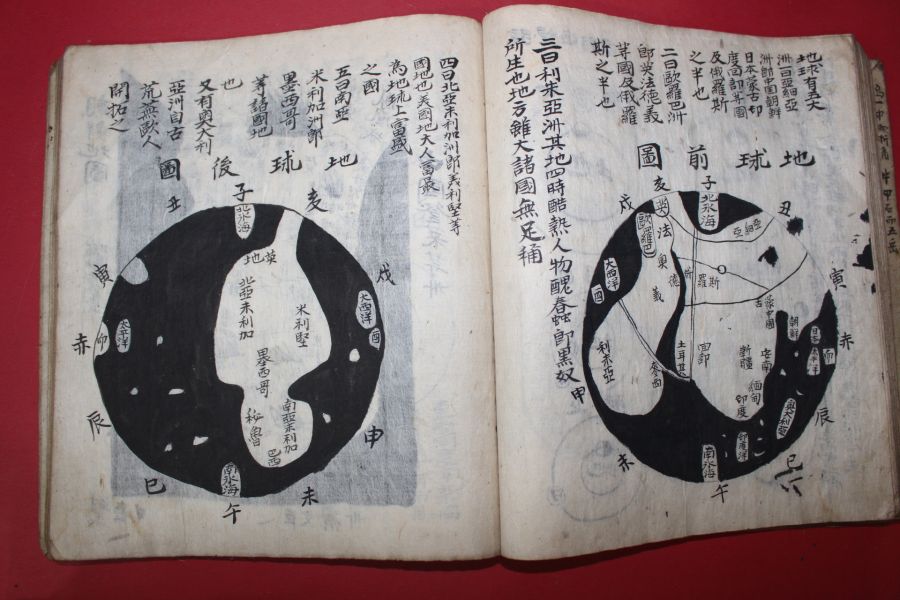 地球有五大
洲曰亞細亞
洲即中國朝鮮
日本蒙古印
度回部等國
及俄羅斯
之半也
二曰歐羅巴洲
即英法德義
等國及俄羅
斯之半也
三曰利未亞洲其地四時酷熱人物醜蠢即黑奴
所生也地方雖大諸國無足稱
地球前圖
子
丑
寅
赤
卯
辰
巳
午
赤
申
酉
戌
亥
北氷海
亞細亞
歐羅巴
英
法
奧
德
義
俄
羅
斯
大西洋
利未亞
土耳其
麥西
回部
新疆
蒙古
中國
朝鮮
日本
太平洋
安南
緬甸
印度
奧大利亞
印度洋
南氷海
四曰北亞未利加洲即美利堅等
國地也美國地大人富最
為地球上富盛
之國
五曰南亞
米利加洲即
墨西哥
等諸國地
也
又有奧大利
亞洲自古
荒蕪歐人
開拓之
地球後圖
子
亥
戌
酉
申
未
午
巳
辰
卯
赤
寅
丑
北氷海
英地
北亞未利加
米利堅
大西洋
太平洋
墨西哥
南亞未利加
秘魯
巴西
南氷海